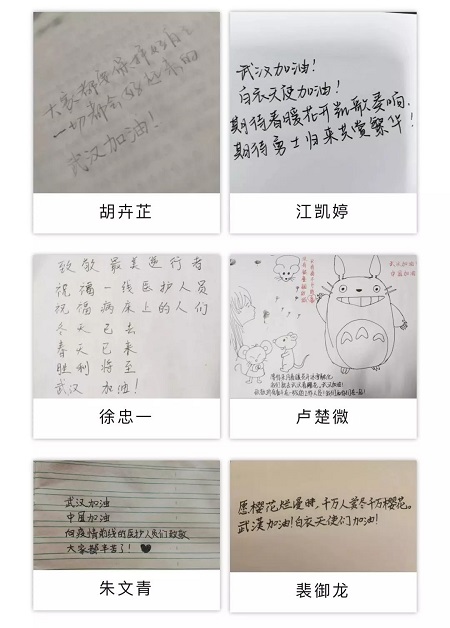 大家都要保护好自己
一切都会好起来的
武汉加油!
胡卉芷
武汉加油!
白衣天使加油!
期待春暖花开凯歌奏响.
期待勇士归来共赏繁华!
江凯婷
致敬最美逆行者
祝福一线医护人员
祝福病床上的人们
冬天已去
春天已来
胜利将至
武汉 加油!
徐忠一
卢楚微
武汉加油
中国加油
向疫情前线的医护人员们致敬
大家都辛苦了!
朱文青
愿樱花烂漫时,千万人尝尽千万樱花。
武漢加油!白衣天使们加油!
裴御龙